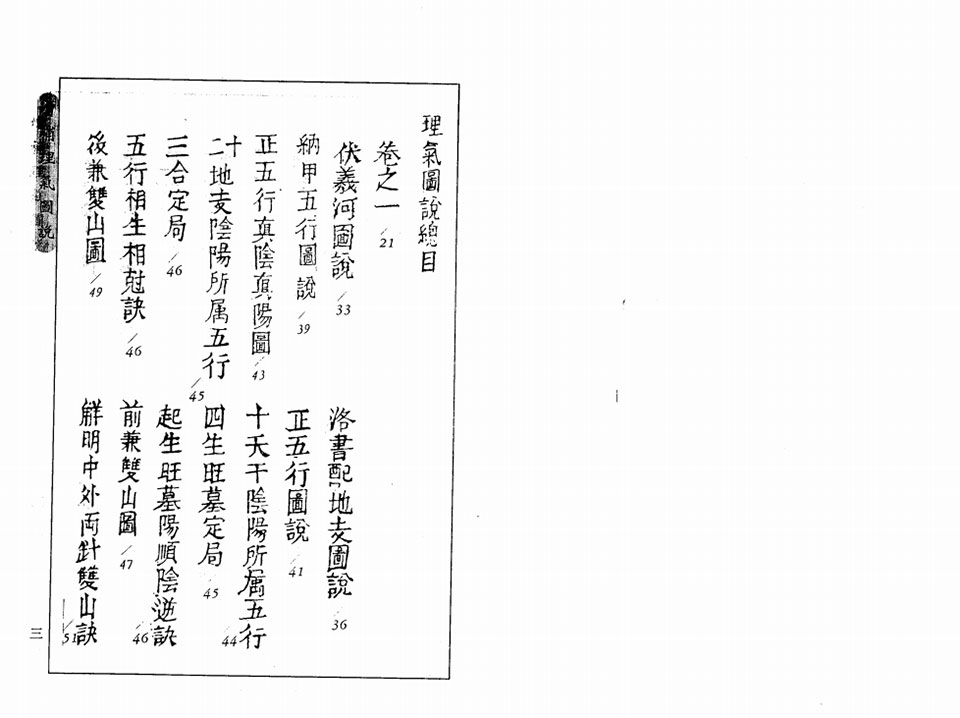 理氣圖說總目
卷之一 /21
伏羲河圖說 /33
洛書配地支圖說 /36
納甲五行圖說 /39
正五行圖說 /41
正五行真陰真陽圖 /43
十天干陰陽所属五行 /44
十二地支陰陽所属五行 /45
四生旺墓定局 /45
三合定局 /46
起生旺墓陽順陰逆訣 /46
五行相生相尅訣 /46
前兼雙山圖 /47
後兼雙山圖 /49
觧明中外両針雙山訣 /51
理氣圖說
三